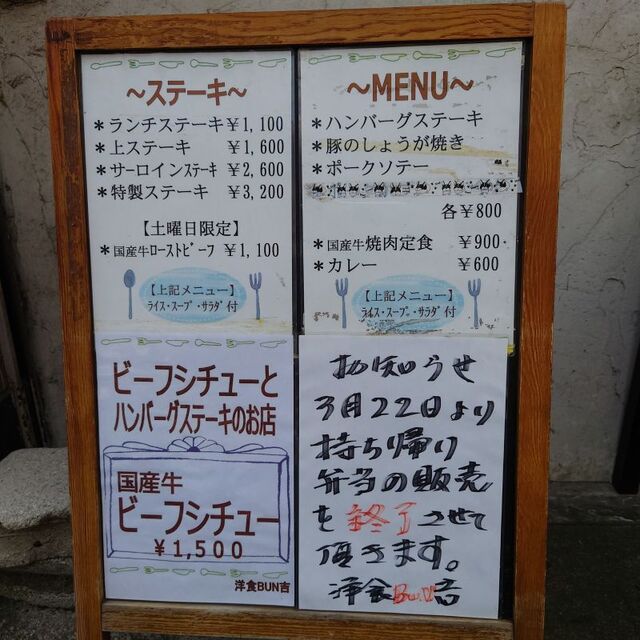 ～ステーキ～
＊ランチステーキ￥1,100
＊上ステーキ ￥1,600
＊サーロインｽﾃｰｷ ￥2,600
＊特製ステーキ ￥3,200
【土曜日限定】
＊国産牛ﾛｰｽﾄﾋﾞｰﾌ ￥1,100
【上記メニュー】
ﾗｲｽ・ｽｰﾌﾟ・ｻﾗﾀﾞ付
～MENU～
＊ハンバーグステーキ
＊豚のしょうが焼き
＊ポークソテー
各￥800
＊国産牛焼肉定食 ￥900
＊カレー ￥600
【上記メニュー】
ﾗｲｽ・ｽｰﾌﾟ・ｻﾗﾀﾞ付
ビーフシチューと
ハンバーグステーキのお店
国産牛
ビーフシチュー
￥1,500
洋食BUN吉
お知らせ
3月22日より
持ち帰り
弁当の販売
を終了させて
頂きます。
洋食BUN吉